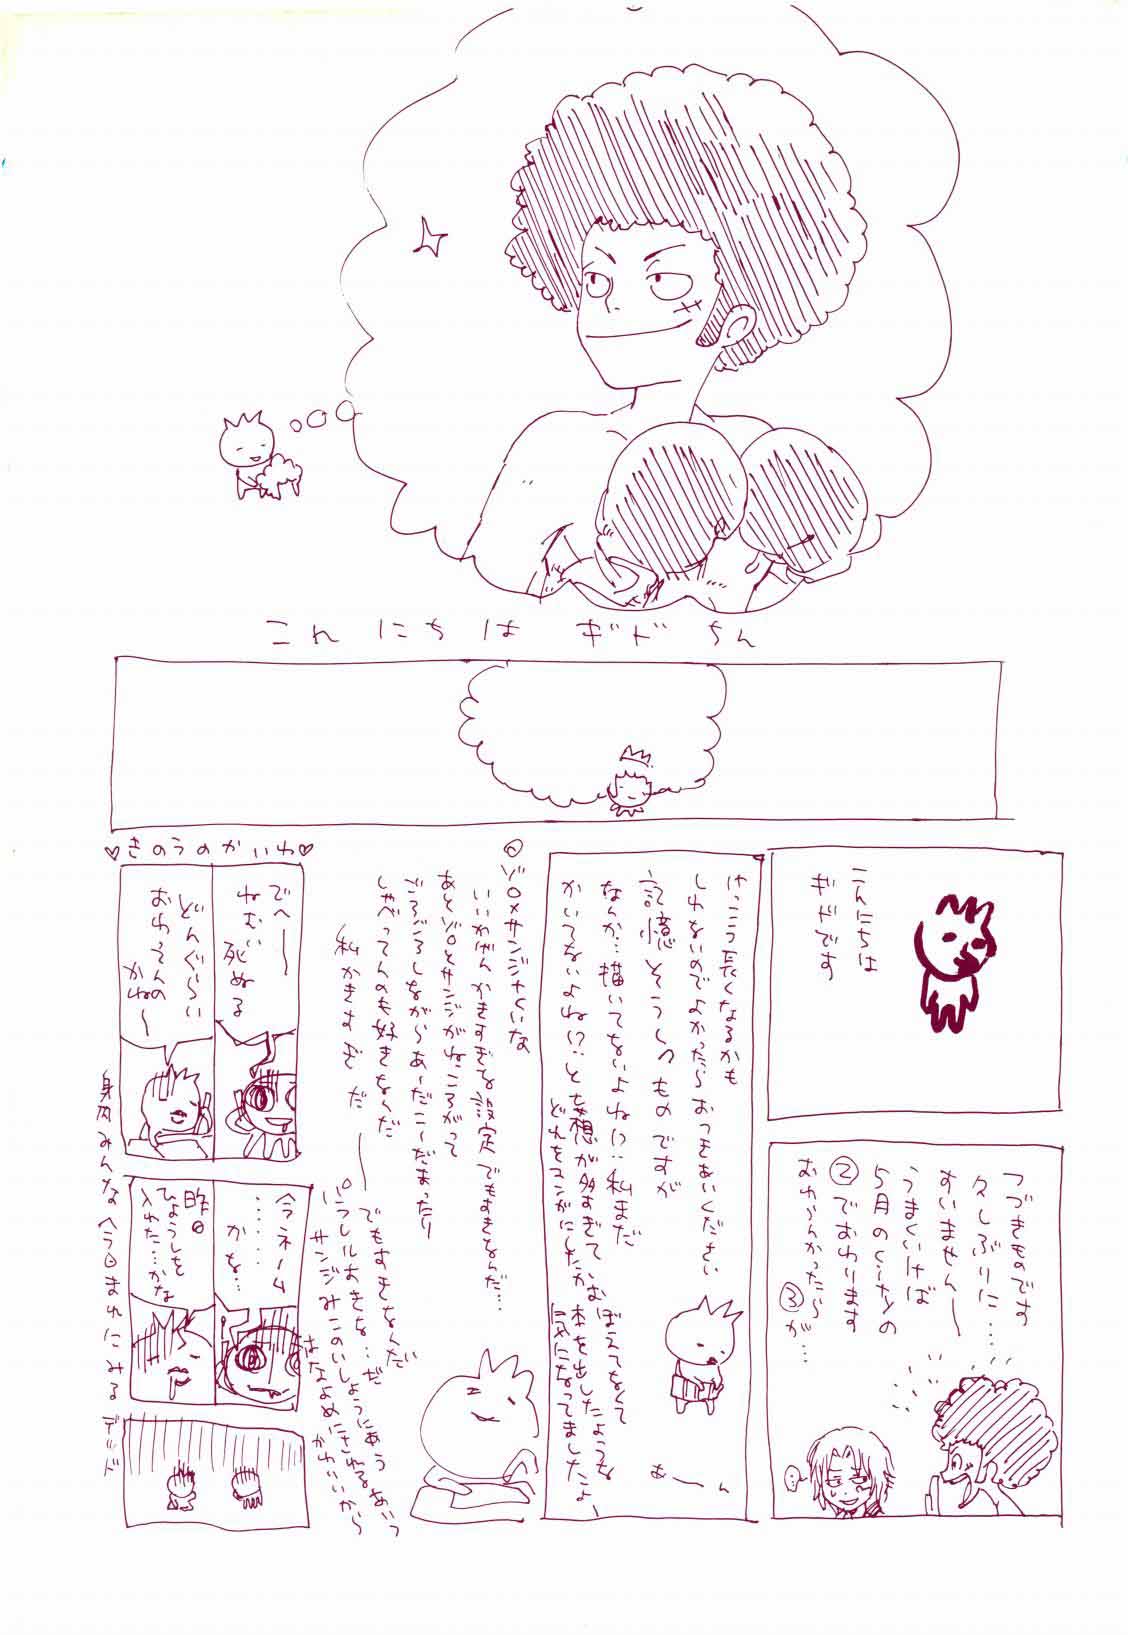 こんにちは ギドちん
こんにちは
ギドです
つづきものです
久しぶりに…
すいません〜
うまくいけば
5月のくらいの
②でおわります
おわらんかったら
③が…
けっこう長くなるかも
しれないのでよかったら おつきあいください
記憶そうしつものですが
なんか…描いてないよね!?私まだ
かいてないよね!?…と妄想が多すぎて
どれをマンガにしたかおぼえてなくて
本を出したような
気になってましたよ、
あーん
ゾロ×サンジくいな
いいかげんかきすぎな設定でもすきなんだ…
あとゾロとサンジがねころがって
ごろごろしながらあーだこーだまったり
しゃべってんのも好きなんだ
私かきすぎだ――
でもすきなんだ
パラレルおきな…だ
サンジみこのいしょうにあう
はなよめにされるあいつ
かわいいから
♡きのうのかいわ♡
でへ〜
ねむい
死ぬる
どんぐらい
おわってんの
かね〜
今ネーム
……
かな…
昨日
ひょうしを
入れた…かな
身内みんな今日まれにみるデッド